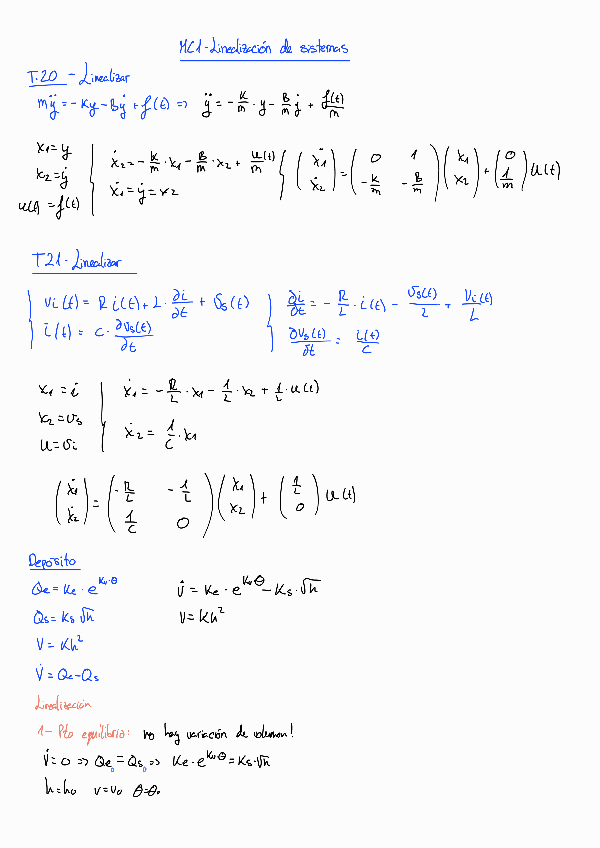 MC1-Linealización de sistemas
T.20 - Linealizar
mÿ = -Ky - Bẏ + f(t) => ÿ = -K/m · y - B/m ẏ + f(t)/m
x1 = y
x2 = ẏ
u(t) = f(t)
ẋ2 = -K/m · x1 - B/m · x2 + u(t)/m
ẋ1 = ẏ = x2
(ẋ1 ẋ2) = (0 1 -K/m -B/m) (x1 x2) + (0 1/m) u(t)
T21- Linealizar
Vi(t) = R i(t) + L · ∂i/∂t + Vs(t)
i(t) = C · ∂Vs(t)/∂t
∂i/∂t = -R/L · i(t) - Vs(t)/L + Vi(t)/L
∂Vs(t)/∂t = i(t)/C
x1 = i
x2 = Vs
u = Vi
ẋ1 = -R/L · x1 - 1/L · x2 + 1/L · u(t)
ẋ2 = 1/C · x1
(ẋ1 ẋ2) = (-R/L -1/L 1/C 0) (x1 x2) + (1/L 0) u(t)
Deposito
Qe = Ke · e^Kv·θ
Qs = Ks √h
V = Kh²
V̇ = Qe - Qs
V̇ = Ke · e^Kv·θ - Ks · √h
V = Kh²
Linealización
1- Pto equilibrio: no hay variación de volumen!
V̇ = 0 => Qe₀ = Qs₀ => Ke · e^Kv·θ = Ks·√h
h = h₀ v = v₀ θ = θ₀